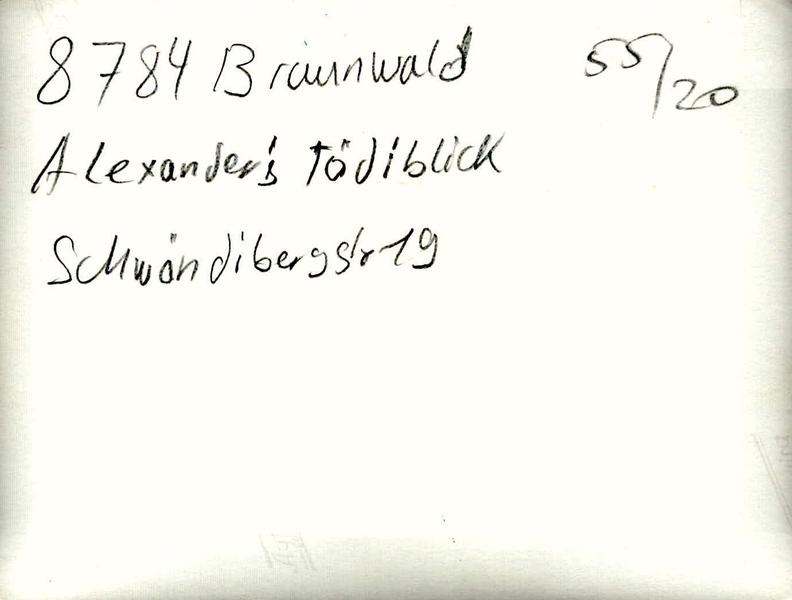 8784 Braunwald 55/20
Alexander's Tödiblick
Schwändibergstr 19